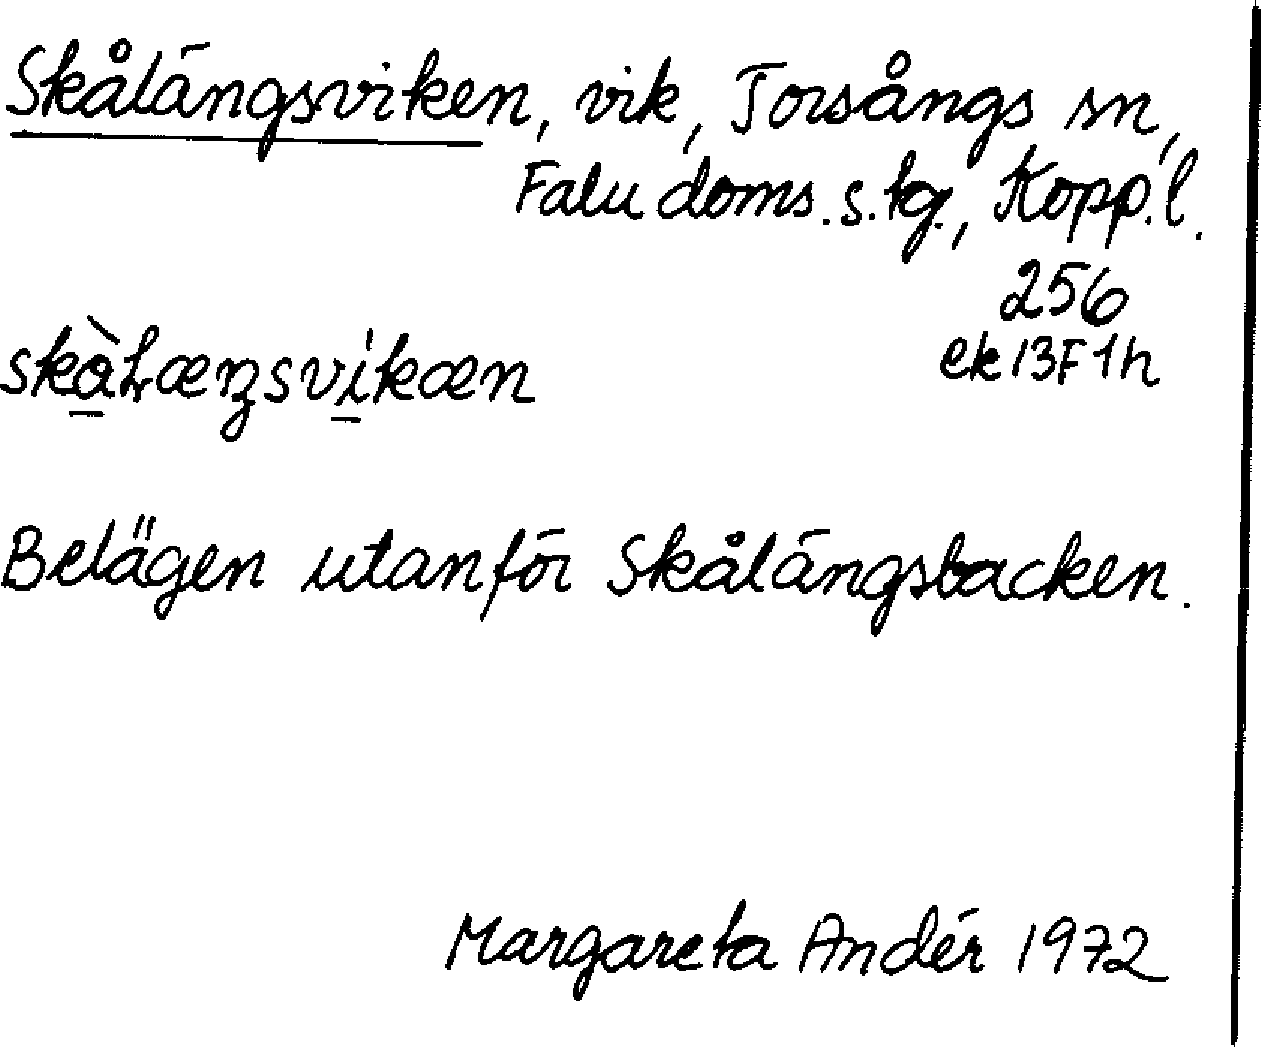 Skålängsviken, vik, Torsångs sn,
Falu doms. s. tg., Kopp. l.
256
ek 13F 1h
Belägen utanför Skålängsbacken.
Margareta Andér 1972